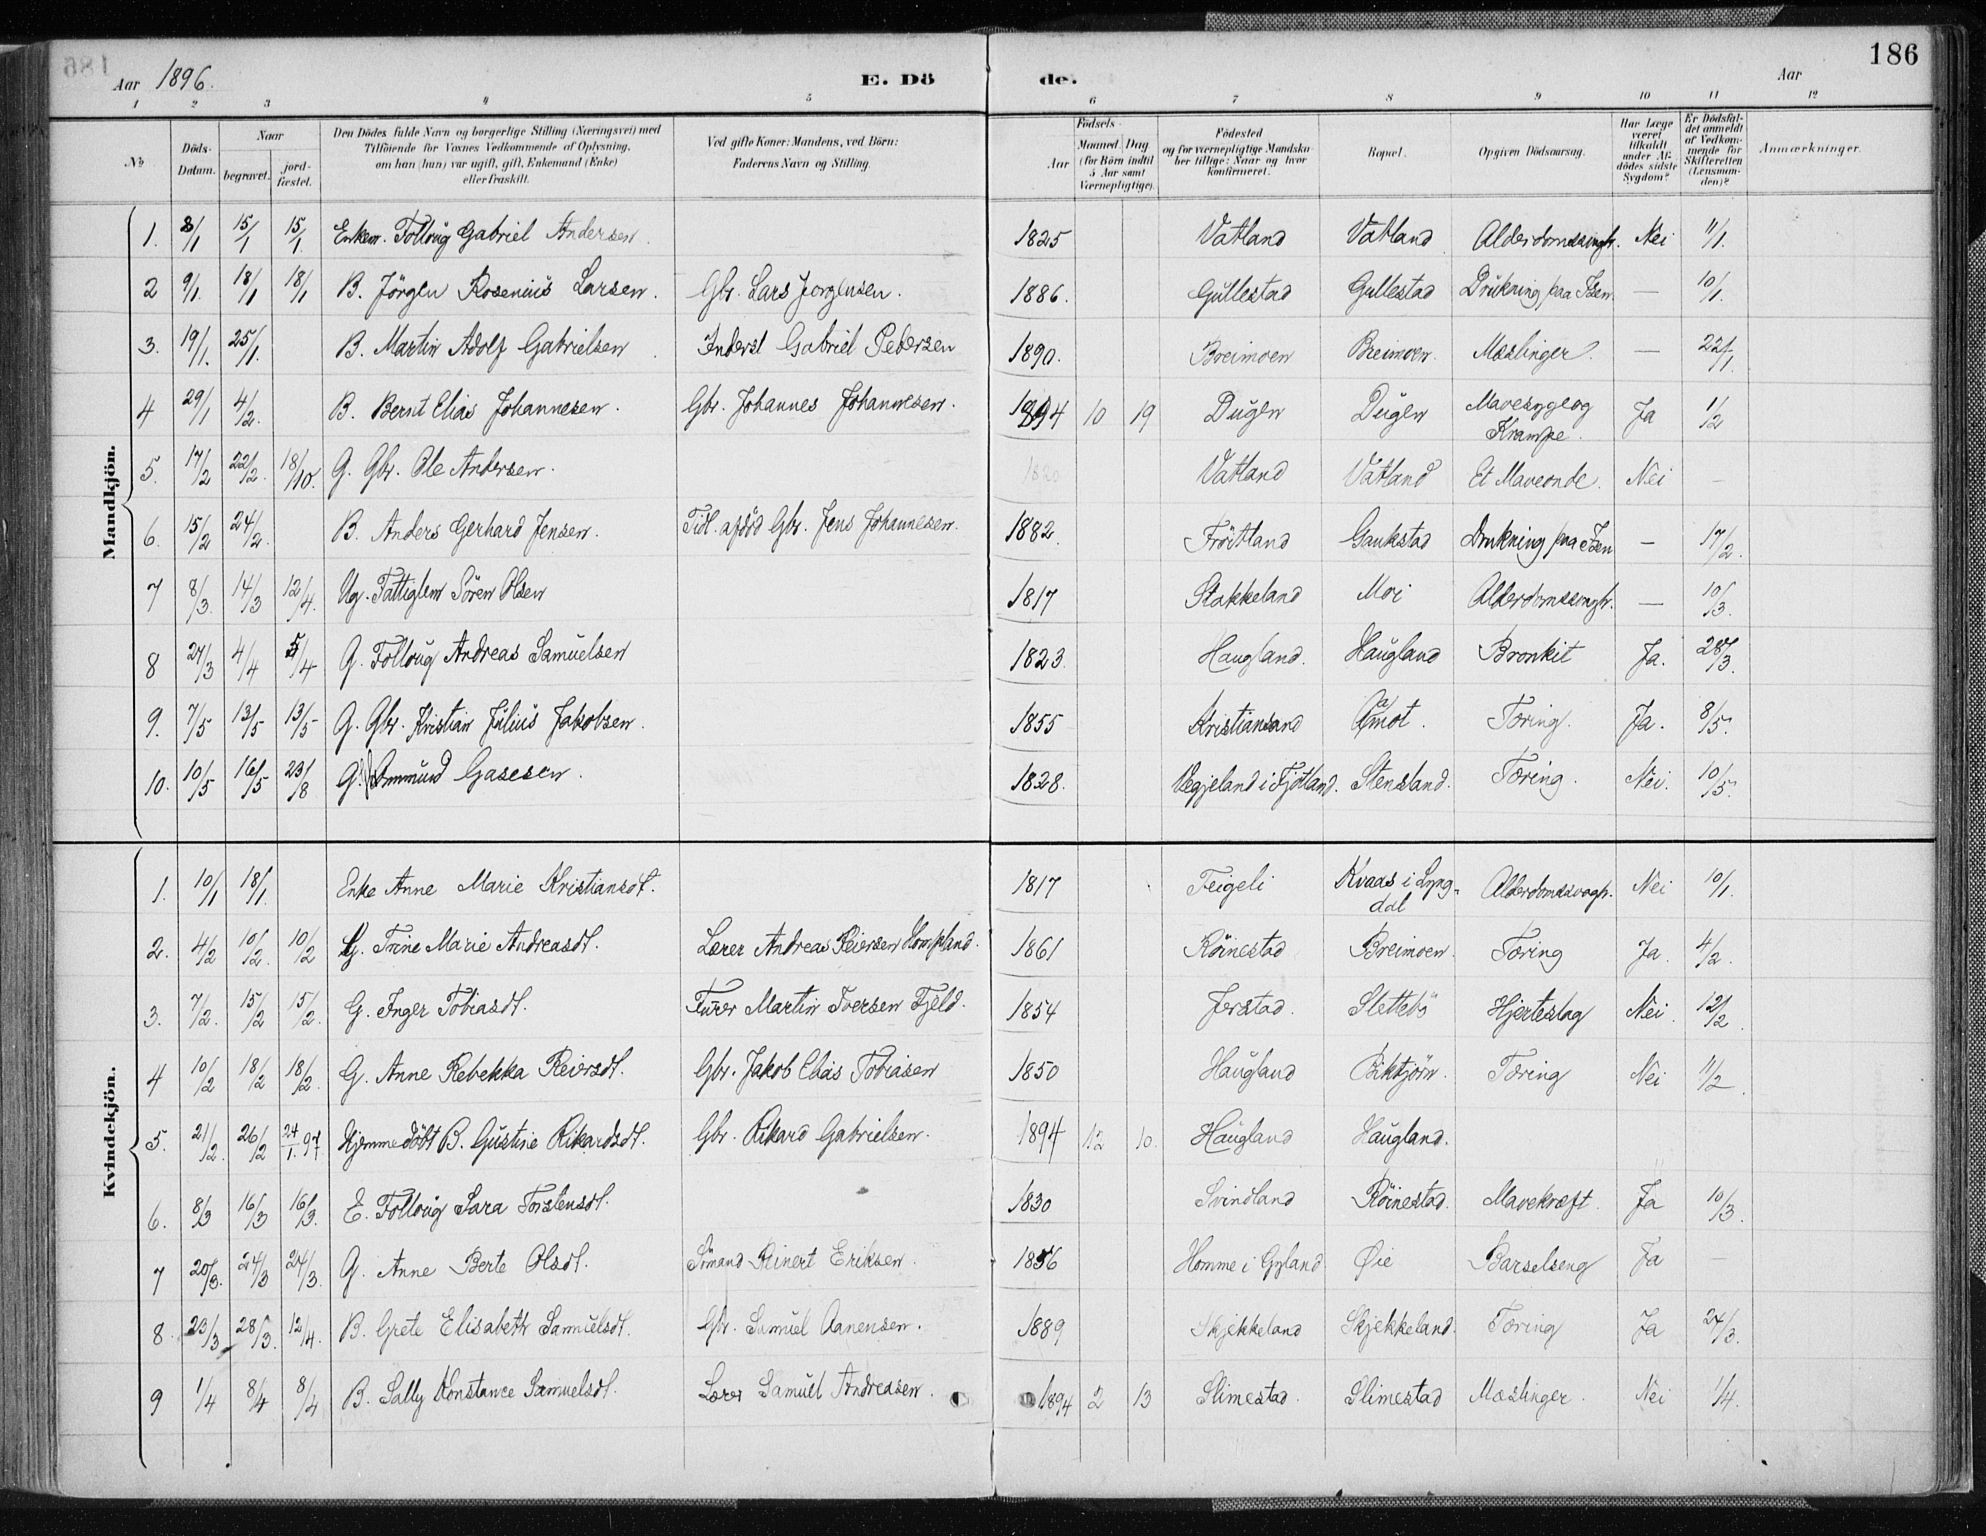 186
Aar 1896. E. Dö de. Aar
1 2 3 4 5 6 7 8 9 10 11 12
No
Döds-Datum.
Naar
begravet.
jord-fæstet.
Den Dödes fulde Navn og borgerlige Stilling (Næringsvei) med
Tilföiende for Voxnes Vedkommende af Oplysning,
om han (hun) var ugift, gift, Enkemand (Enke)
eller fraskilt.
Ved gifte Koner: Mandens, ved Börn:
Faderens Navn og Stilling.
Födsels-
Aar
Maaned Dag
(for Börn indtil
5 Aar samt
Værnepligtige).
Födested
og for værnepligtige Mandska-
ber tillige: Naar og hvor
konfirmeret.
Bopæl.
Opgiven Dödsaarsag.
Har Læge
været
tilkaldt
under Af-
dödes sidste
Sygdom?
Er Dödsfal-
det anmeldt
af Vedkom-
mende for
Skifteretten
(Lensman-
den)?
Anmærkninger.
Mandkjön.
1. 8/1 15/1 15/1 Enkem. Folloug Gabriel Andersen. 1825 Vatland Vatland Alderdomssvagh. Nei 11/1.
2 9/1. 18/1 18/1 B. Jörgen Rosenius Larsen. Gbr. Lars Jorgensen. 1886. Gullestad Gullestad Drukning paa Isen. — 10/1.
3. 19/1. 25/1. B. Martin Adolf Gabrielsen. Inderst Gabriel Pedersen 1890. Breimoen Breimoen. Mæslinger. — 22/1.
4 29/1 4/2. B. Bernt Elias Johannesen. Gbr. Johannes Johannesen. 1894 10 19 Dugen Dugen Mavesyge og Krampe. Ja 1/2
5. 17/2 22/2. 18/10. G. Gbr. Ole Andersen. 1820 Vatland Vatland Et Maveonde. Nei —
6. 15/2 24/2. B. Anders Gerhard Jensen. Tidl. afdöd Gbr. Jens Johannesen. 1882. Fröitland Gaukstad Drukning paa Isen — 17/2.
7 8/3. 14/3 12/4. Ug. Fattiglem Sören Olsen 1817 Stakkeland Moi Alderdomssvagh. — 10/3.
8 27/3 4/4 5/4 G. Folloug Andreas Samuelsen 1823. Haugland. Haugland Bronkit Ja. 28/3.
9. 7/5 13/5 13/5 G. Gbr. Kristian Julius Jakobsen. 1855 Kristiansand Aamot. Tæring. Ja. 8/5.
10. 10/5 16/5 23/8 G. Ommund Gasesen. 1828. Vegjeland i Fjotland. Stensland. Tæring. Nei. 10/5.
Kvindekjön.
1. 10/1 18/1. Enke Anne Marie Kristiansdt. 1817 Feigeli Kvaas i Lyng-dal Alderdomssvagh. Nei 10/1.
2. 4/2 10/2. 10/2 G. Trine Marie Andreasdt. Lærer Andreas Reiersen Hompland. 1861 Röinestad Breimoen. Tæring Ja. 4/2.
3. 7/2. 15/2 15/2. G. Inger Tobiasdt. Furer Martin Iversen Fjeld. 1854 Jerstad. Slettebö Hjerteslag Nei. 12/2.
4 10/2 18/2 18/2. G. Anne Rebekka Reiersdt. Gbr. Jakob Elias Tobiasen 1850 Haugland Birktjörn. Tæring Nei 11/2
5. 21/2. 26/2 24/1. 97. Hjemmedöbt B. Gustine Rikardsdt. Gbr. Rikard Gabrielsen. 1894 12 10. Haugland Haugland.
6. 8/3 16/3 16/3. E. Folloug Sara Torstensdt. 1830 Svindland Röinestad. Mavekræft. Ja 10/3.
7 20/3. 24/3 24/3. G. Anne Berte Olsdt. Sömand Reinert Eriksen. 1856 Homme i Gyland Øie Barselseng Ja —
8. 23/3 28/3. 12/4. B. Grete Elisabeth Samuelsdt. Gbr. Samuel Aanensen. 1889 Skjekkeland Skjekkeland. Tæring Ja 24/3.
9 1/4 8/4 8/4 B. Sally Konstance Samuelsdt. Lærer Samuel Andreasen. 1894 2 13 Slimestad. Slimestad Mæslinger. Nei 1/4.